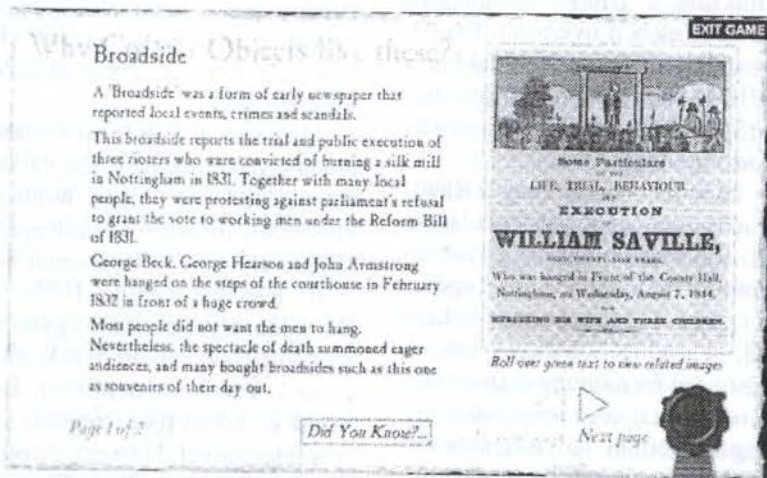 EXIT GAME
Why Collect Objects like these?
Broadside
A 'Broadside' was a form of early newspaper that
reported local events, crimes and scandals.
This broadside reports the trial and public execution of
three rioters who were convicted of burning a silk mill
in Nottingham in 1831. Together with many local
people, they were protesting against parliament's refusal
to grant the vote to working men under the Reform Bill
of 1831.
George Beck, George Hearson and John Armstrong
were hanged on the steps of the courthouse in February
1832 in front of a huge crowd.
Most people did not want the men to hang.
Nevertheless, the spectacle of death summoned eager
audiences, and many bought broadsides such as this one
as souvenirs of their day out.
Page 1 of 2
Did You Know?...
Some Particulars
OF THE
LIFE, TRIAL, BEHAVIOUR
AND
EXECUTION
WILLIAM SAVILLE,
Who was hanged in Front of the County Hall,
Nottingham, on Wednesday, August 7, 1844,
FOR
MURDERING HIS WIFE AND THREE CHILDREN.
Roll over green text to view related images
Next page